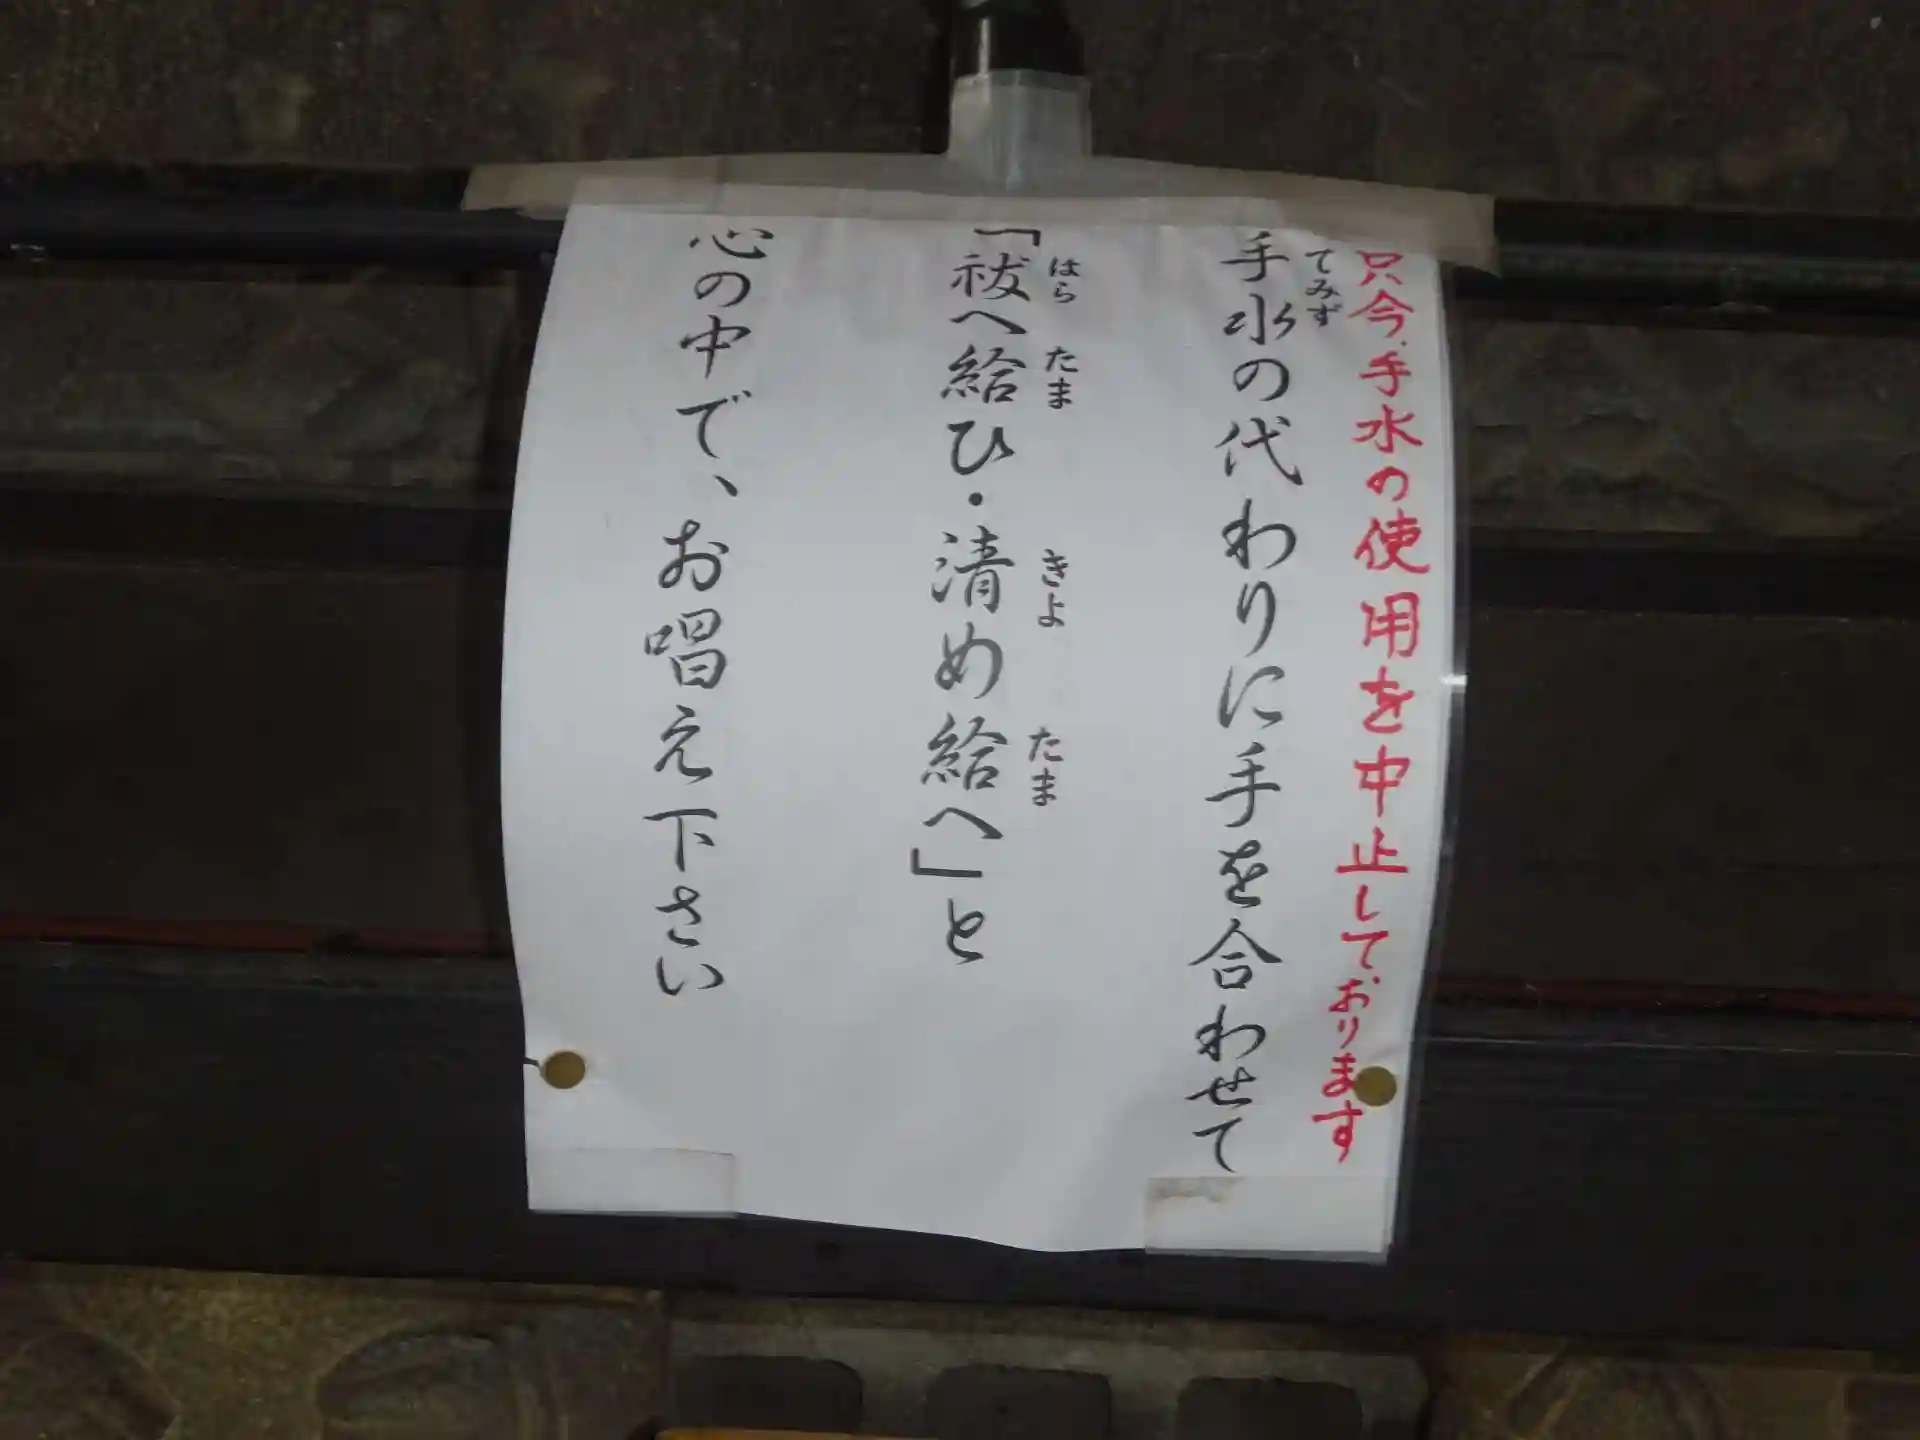 只今、手水の使用を中止しております
手水の代わりに手を合わせて
てみず
「祓へ給ひ・清め給へ」と
はら たま きよ たま
心の中で、お唱え下さい